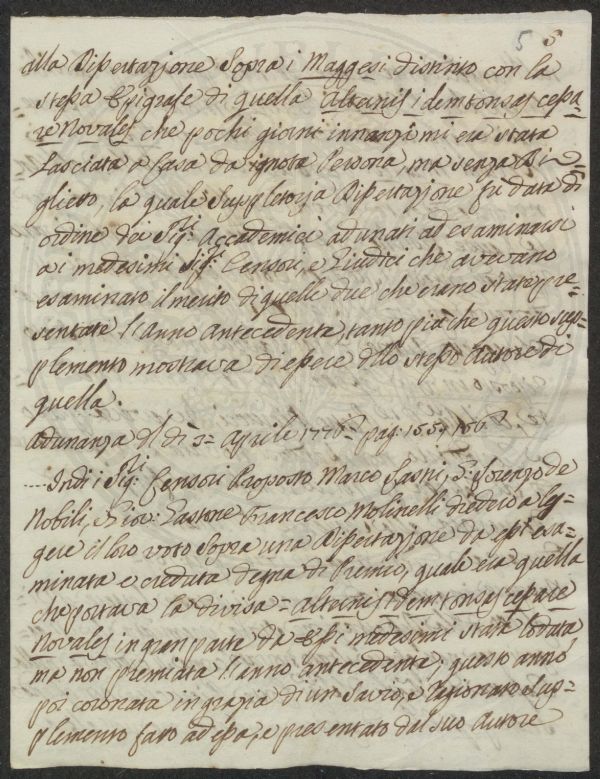 5 5
alla Dissertazione Sopra i Maggesi distinto con la
stessa Epigrafe di quella Alternis idem tonsas cessa-
re Novales che pochi giorni innanzi mi era stata
Lasciata a Casa da ignota Persona, ma senza Bi-
glietto, la quale Suppletoria Dissertazione fu data di
ordine dei Sig:ri Accademici adunati ad esaminarsi
a i medesimi Sig:ri Censori, e Giudici che avevano
esaminato il merito di quelle due che erano state pre-
sentate l'Anno Antecedente, tanto più che questo sup-
plemento mostrava di essere dello stesso Autore di
quella.
Adunanza del dì 3 Aprile 1776 pag: 155, 156
Indi i Sig:ri Censori Proposto Marco Lastri, D. Lorenzo de
Nobili, e Giov: Gastone Francesco Molinelli diedero a leg-
gere il loro voto Sopra una Dissertazione da essi esa-
minata e creduta degna di Premio, quale era quella
che portava la divisa = Alternis idem tonsas cessare
Novales in gran parte da Essi medesimi stata lodata
ma non premiata l'anno antecedente; questo anno
poi coronata in grazia di un Savio, e ragionato Sup-
plemento fatto ad essa, e presentato dal suo Autore